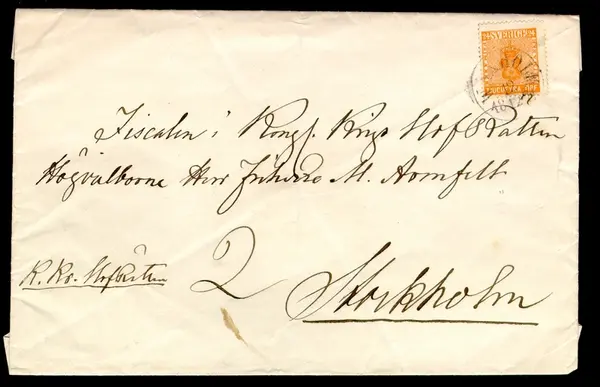 24 SVERIGE 24
TJUGUFYRA ÖRE
Fiscalen i Kongl. Krigs HofRätten
Högvälborne Herr Friherre M. Armfelt
K. Kr. Hofrätten 2
Stockholm